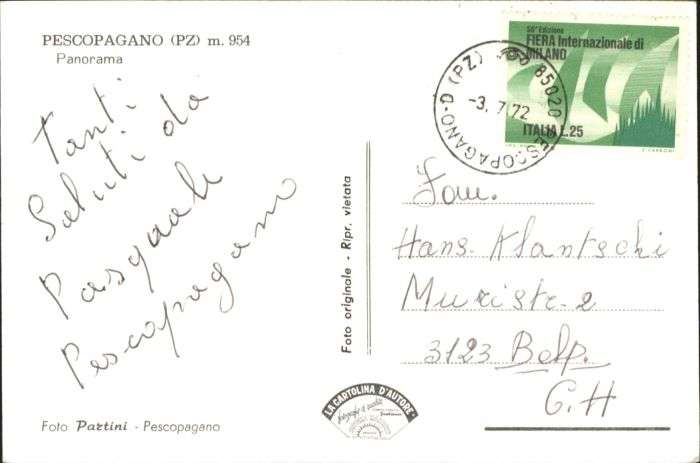 PESCOPAGANO (PZ) m. 954
Panorama
Tanti
Saluti da
Pasquale
Pescopagano
Foto Partini - Pescopagano
Foto originale - Ripr. vietata
LA CARTOLINA D'AUTORE
50ª Edizione
FIERA Internazionale di
MILANO
ITALIA L.25
PESCOPAGANO-D (PZ) 85020
-3. 7 72
Fam.
Hans Klantschi
Muristr. 2
3123 Belp.
C.H